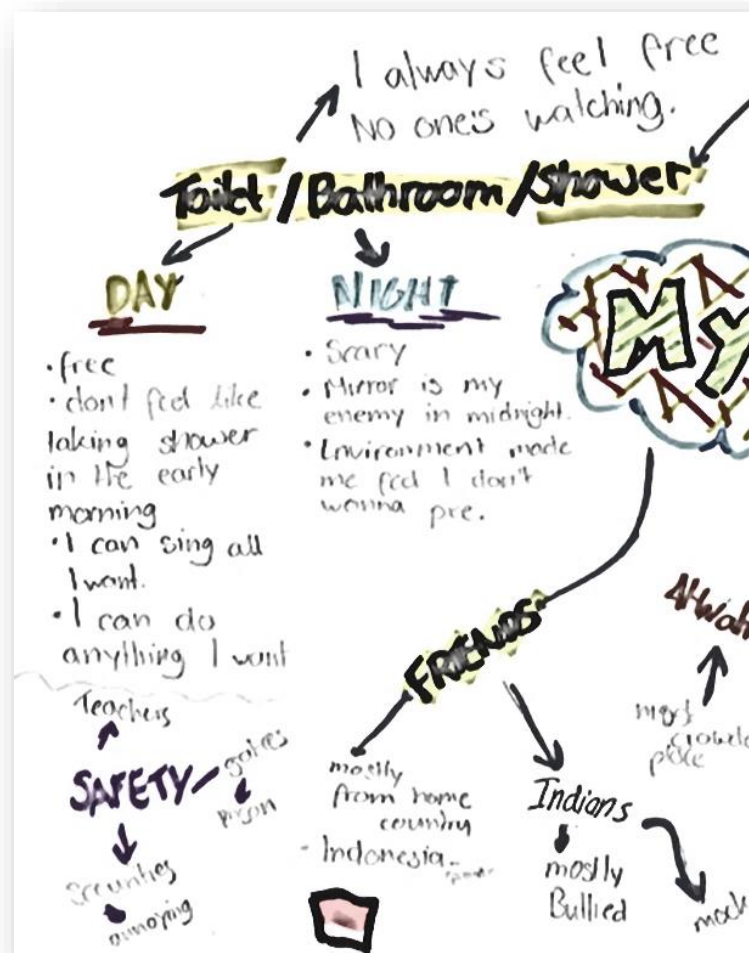 I always feel free
No one's watching.
Toilet / Bathroom / Shower
DAY
• free
• dont feel like
taking shower
in the early
morning
• I can sing all
I want.
• I can do
anything I want
NIGHT
• Scary
• Mirror is my
enemy in midnight.
• Environment made
me feel I don't
wanna pee.
MY
FRIENDS
mostly
from home
country
- Indonesia-
Indians
mostly
Bullied
mock
most
crowde
place
Teachers
SAFETY
gates
Securities
annoying